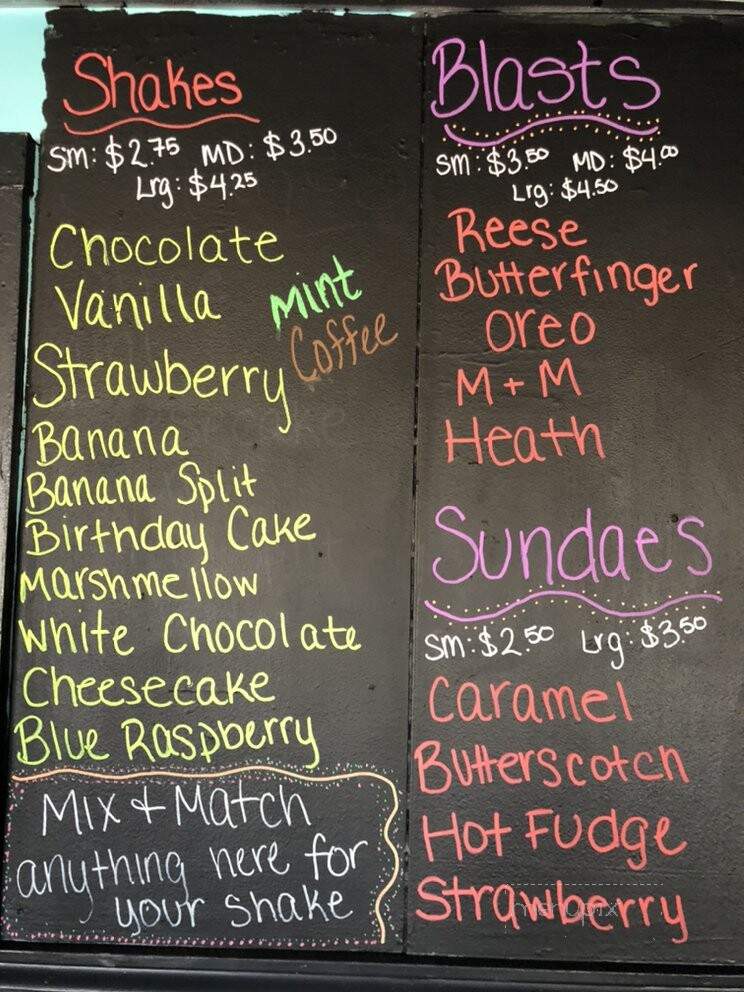 Shakes
Sm: $2.75 MD: $3.50
Lrg: $4.25
Chocolate
Vanilla
Mint
Coffee
Strawberry
Banana
Banana Split
Birthday Cake
Marshmellow
White Chocolate
Cheesecake
Blue Raspberry
Mix + Match
anything here for
your shake
Blasts
Sm: $3.50 MD: $4.00
Lrg: $4.50
Reese
Butterfinger
Oreo
M + M
Heath
Sundaes
Sm: $2.50 Lrg: $3.50
Caramel
Butterscotch
Hot Fudge
Strawberry
menupix